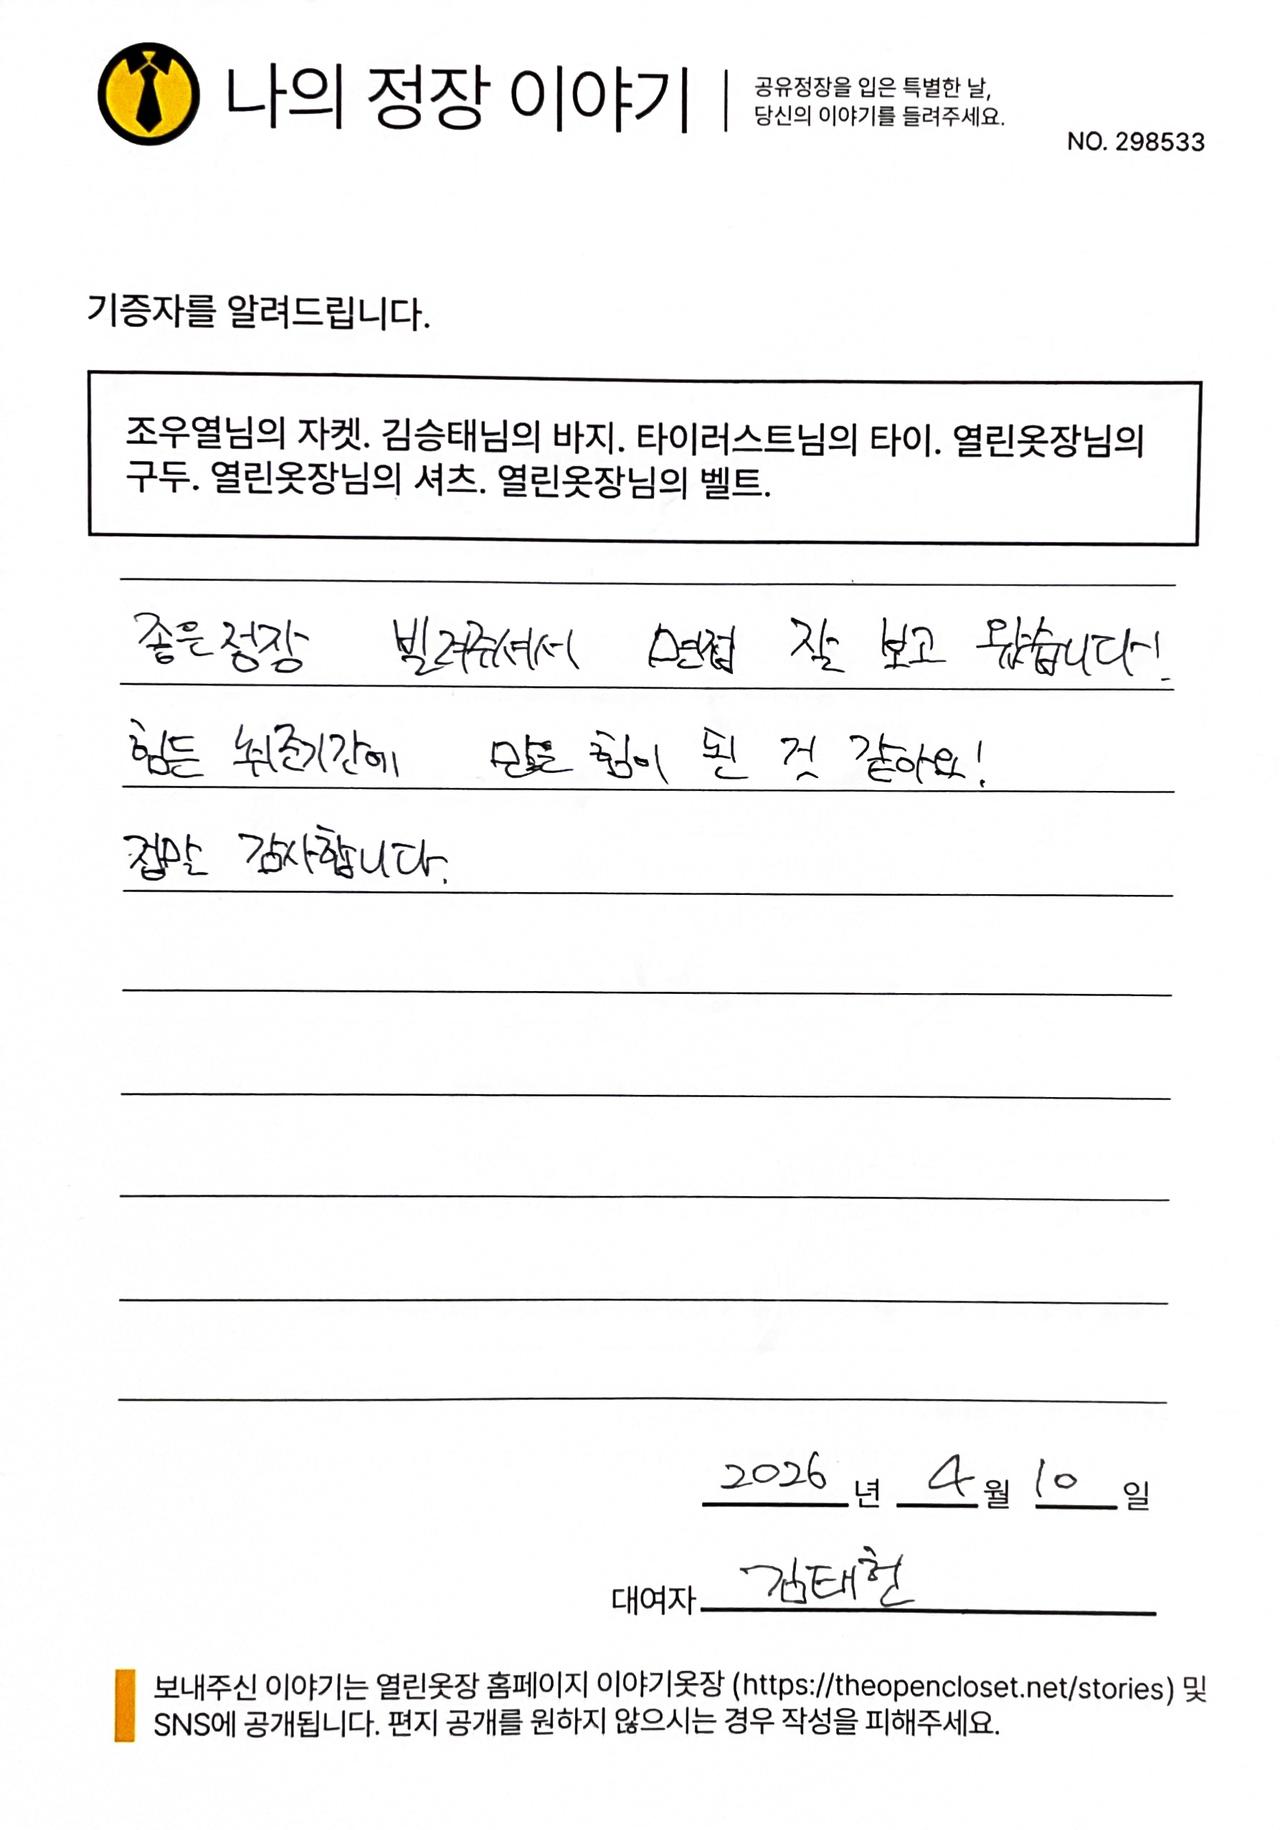 나의 정장 이야기
공유정장을 입은 특별한 날,
당신의 이야기를 들려주세요.
NO. 298533
기증자를 알려드립니다.
조우열님의 자켓. 김승태님의 바지. 타이러스트님의 타이. 열린옷장님의
구두. 열린옷장님의 셔츠. 열린옷장님의 벨트.
좋은 정장 빌려주셔서 면접 잘 보고 왔습니다!
힘든 취준기간에 많은 힘이 된 것 같아요!
정말 감사합니다.
2026 년 4 월 10 일
대여자 김태헌
보내주신 이야기는 열린옷장 홈페이지 이야기옷장 (https://theopencloset.net/stories) 및
SNS에 공개됩니다. 편지 공개를 원하지 않으시는 경우 작성을 피해주세요.